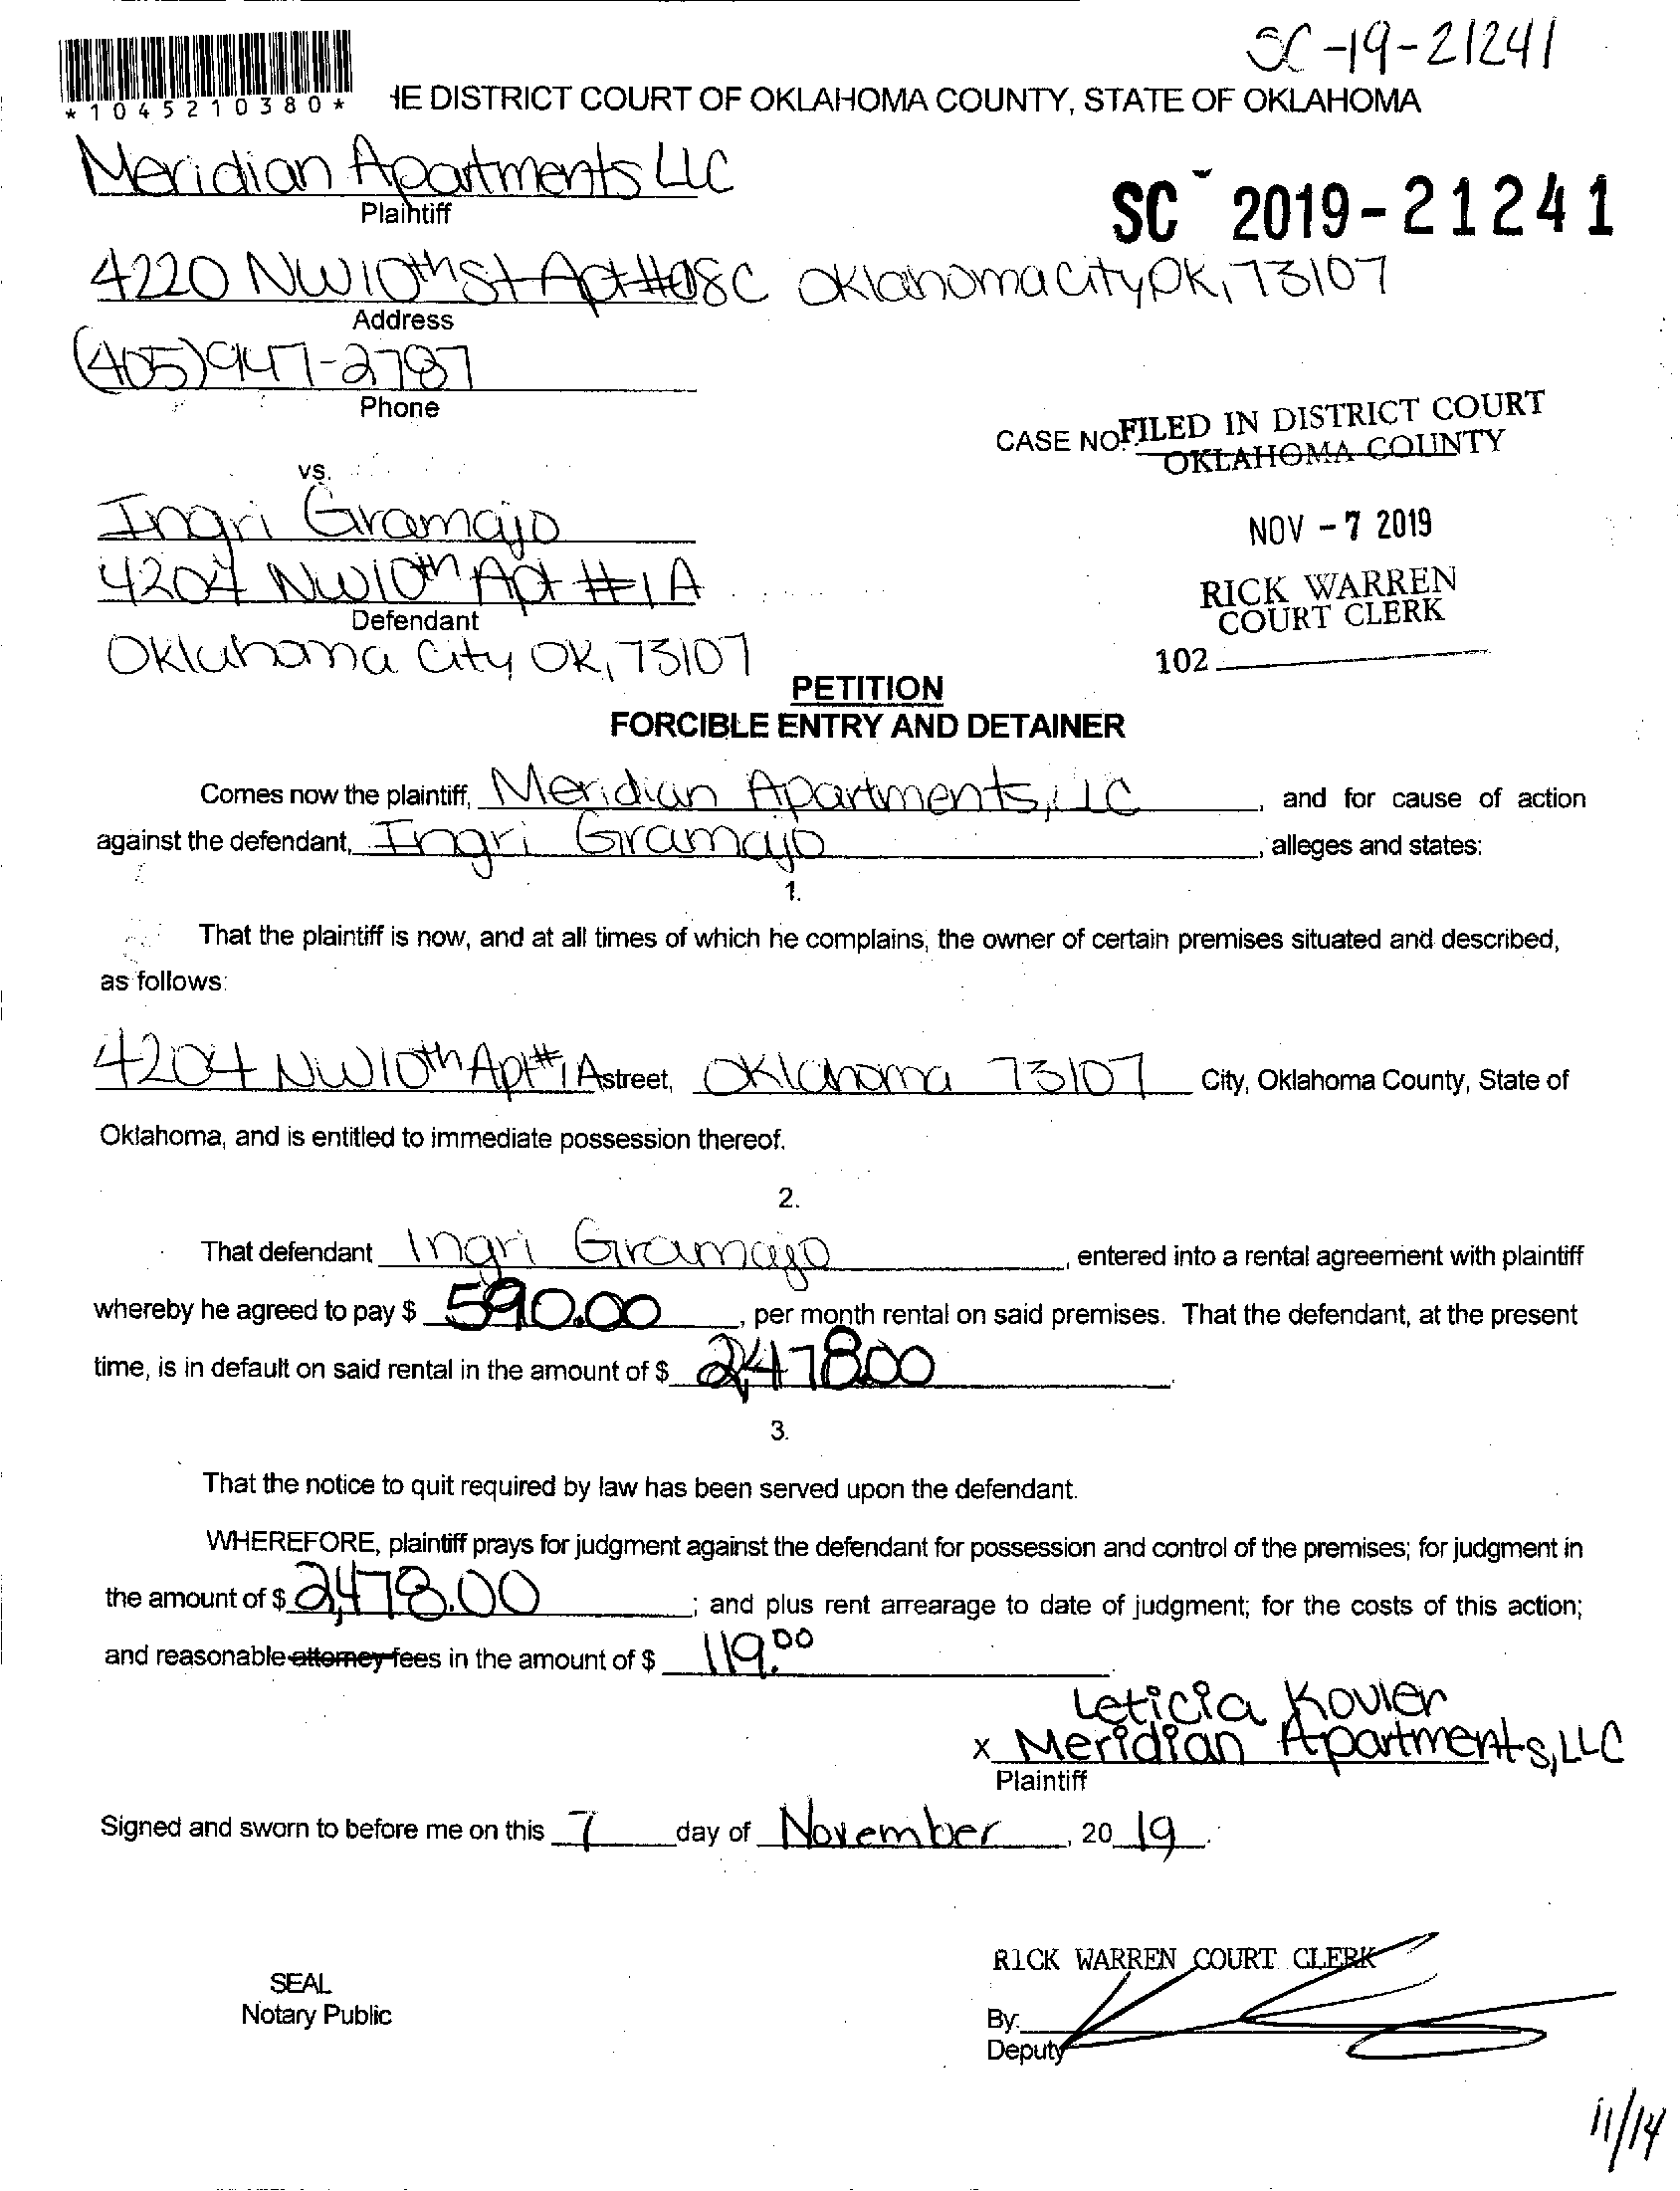 SC-19-21241
*1045210380*
HE DISTRICT COURT OF OKLAHOMA COUNTY, STATE OF OKLAHOMA
Meridian Apartments LLC
Plaintiff
SC 2019-21241
4220 NW10th St Apt#08C Oklahoma City OK, 73107
Address
(405)947-2787
Phone
CASE NO.
FILED IN DISTRICT COURT
OKLAHOMA COUNTY
vs.
NOV - 7 2019
Ingri Gramajo
4204 NW10th Apt #1A
RICK WARREN
COURT CLERK
Defendant
Oklahoma City OK, 73107
102
PETITION
FORCIBLE ENTRY AND DETAINER
Comes now the plaintiff, Meridian Apartments, LLC, and for cause of action
against the defendant, Ingri Gramajo, alleges and states:
1.
That the plaintiff is now, and at all times of which he complains, the owner of certain premises situated and described,
as follows:
4204 NW10th Apt#1A street, Oklahoma 73107 City, Oklahoma County, State of
Oklahoma, and is entitled to immediate possession thereof.
2.
That defendant Ingri Gramajo, entered into a rental agreement with plaintiff
whereby he agreed to pay $ 590.00, per month rental on said premises. That the defendant, at the present
time, is in default on said rental in the amount of $ 2,478.00.
3.
That the notice to quit required by law has been served upon the defendant.
WHEREFORE, plaintiff prays for judgment against the defendant for possession and control of the premises; for judgment in
the amount of $ 2,478.00; and plus rent arrearage to date of judgment; for the costs of this action;
and reasonable attorney fees in the amount of $ 119.00
Leticia Kovler
x Meridian Apartments, LLC
Plaintiff
Signed and sworn to before me on this 7 day of November, 20 19.
RICK WARREN COURT CLERK
SEAL
Notary Public
By:
Deputy
11/14